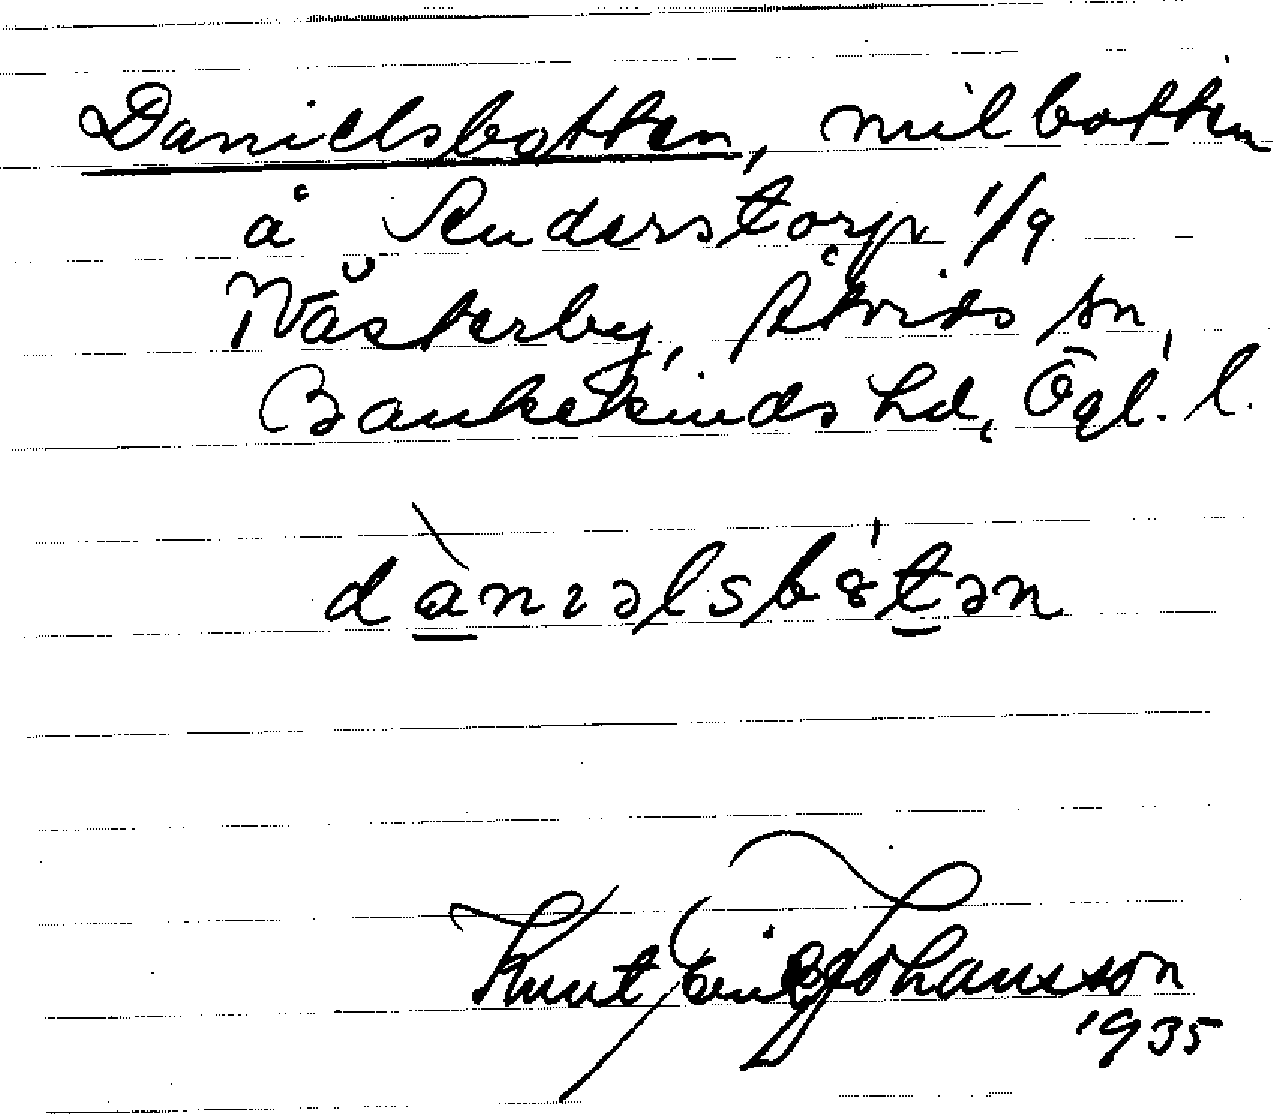 Danielsbotten, milbotten
å Anderstorp 1/9
Västerby, Åtvids sn,
Bankekinds hd, Ögl. l.
dànıəlsb 8́tən
Knut Eric Johansson
1935